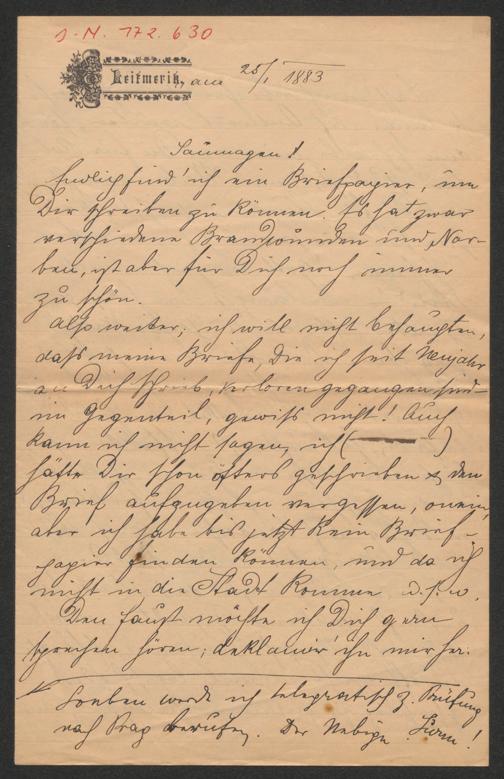 J. N. 172.630
Leitmeritz, am 25/I 1883
Saumagen!
Endlich find' ich ein Briefpapier, um
Dir schreiben zu können. Es hat zwar
verschiedene Brandwunden und Nar-
ben, ist aber für Dich noch immer
zu schön.
Also weiter; ich will nicht behaupten,
dass meine Briefe, die ich seit Neujahr
an Dich schrieb, verloren gegangen sind –
im Gegenteil, gewiss nicht! Auch
kann ich nicht sagen, ich ( )
hätte Dir schon öfters geschrieben & den
Brief aufzugeben vergessen, o nein,
aber ich habe bis jetzt kein Brief-
papier finden können, und da ich
nicht in die Stadt komme u.s.w.
Den Faust möchte ich Dich gern
sprechen hören; deklamir' ihn mir her.
Soeben werde ich telegrafisch z. Prüfung
nach Prag berufen. Der Nebige